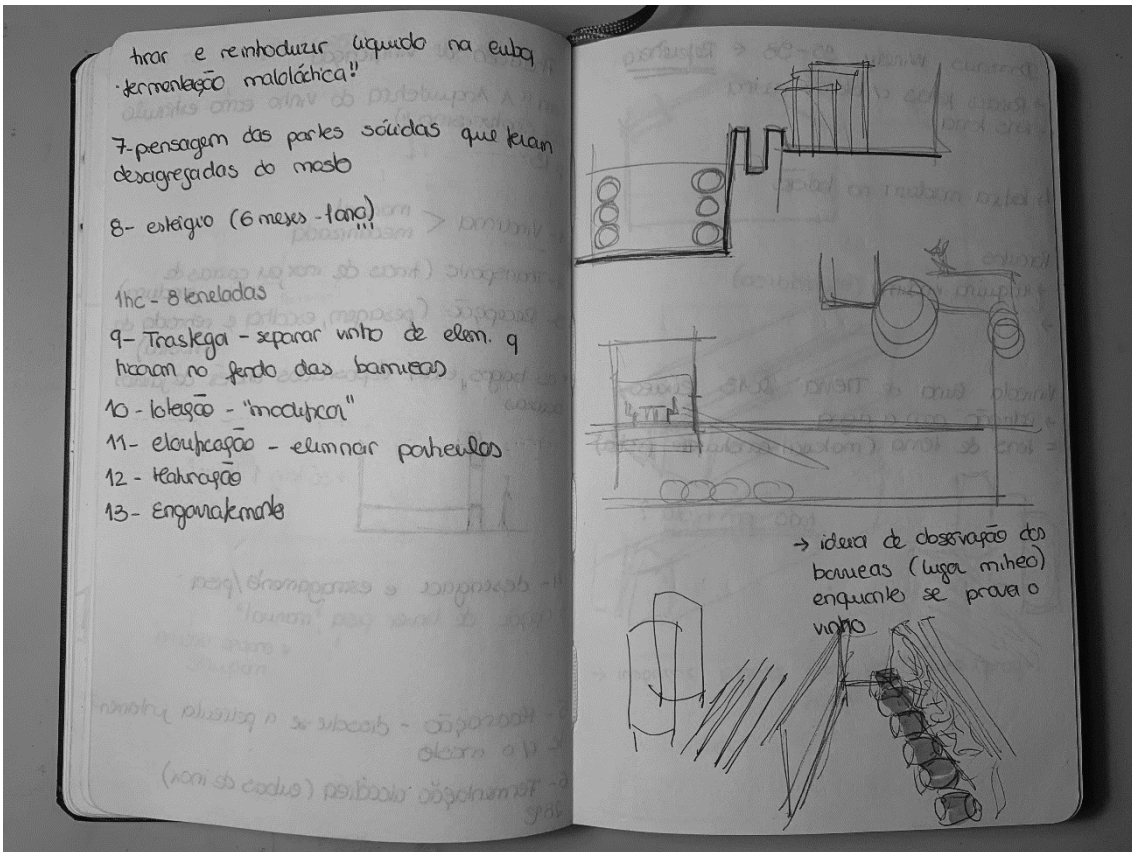 tirar e reintroduzir líquido na cuba
·fermentação maloláctica!!
7-prensagem das partes sólidas que foram
desagregadas do mosto
8- estágio (6 meses - 1ano)!!!
1hc - 8 toneladas
9- Trasfega - separar vinho de elem. q
ficaram no fundo das barricas
10 - lotação - "modificar"
11 - clarificação - eliminar partículas
12 - filtração
13- Engarrafamento
→ ideia de observação das
barricas (lugar mítico)
enquanto se prova o
vinho